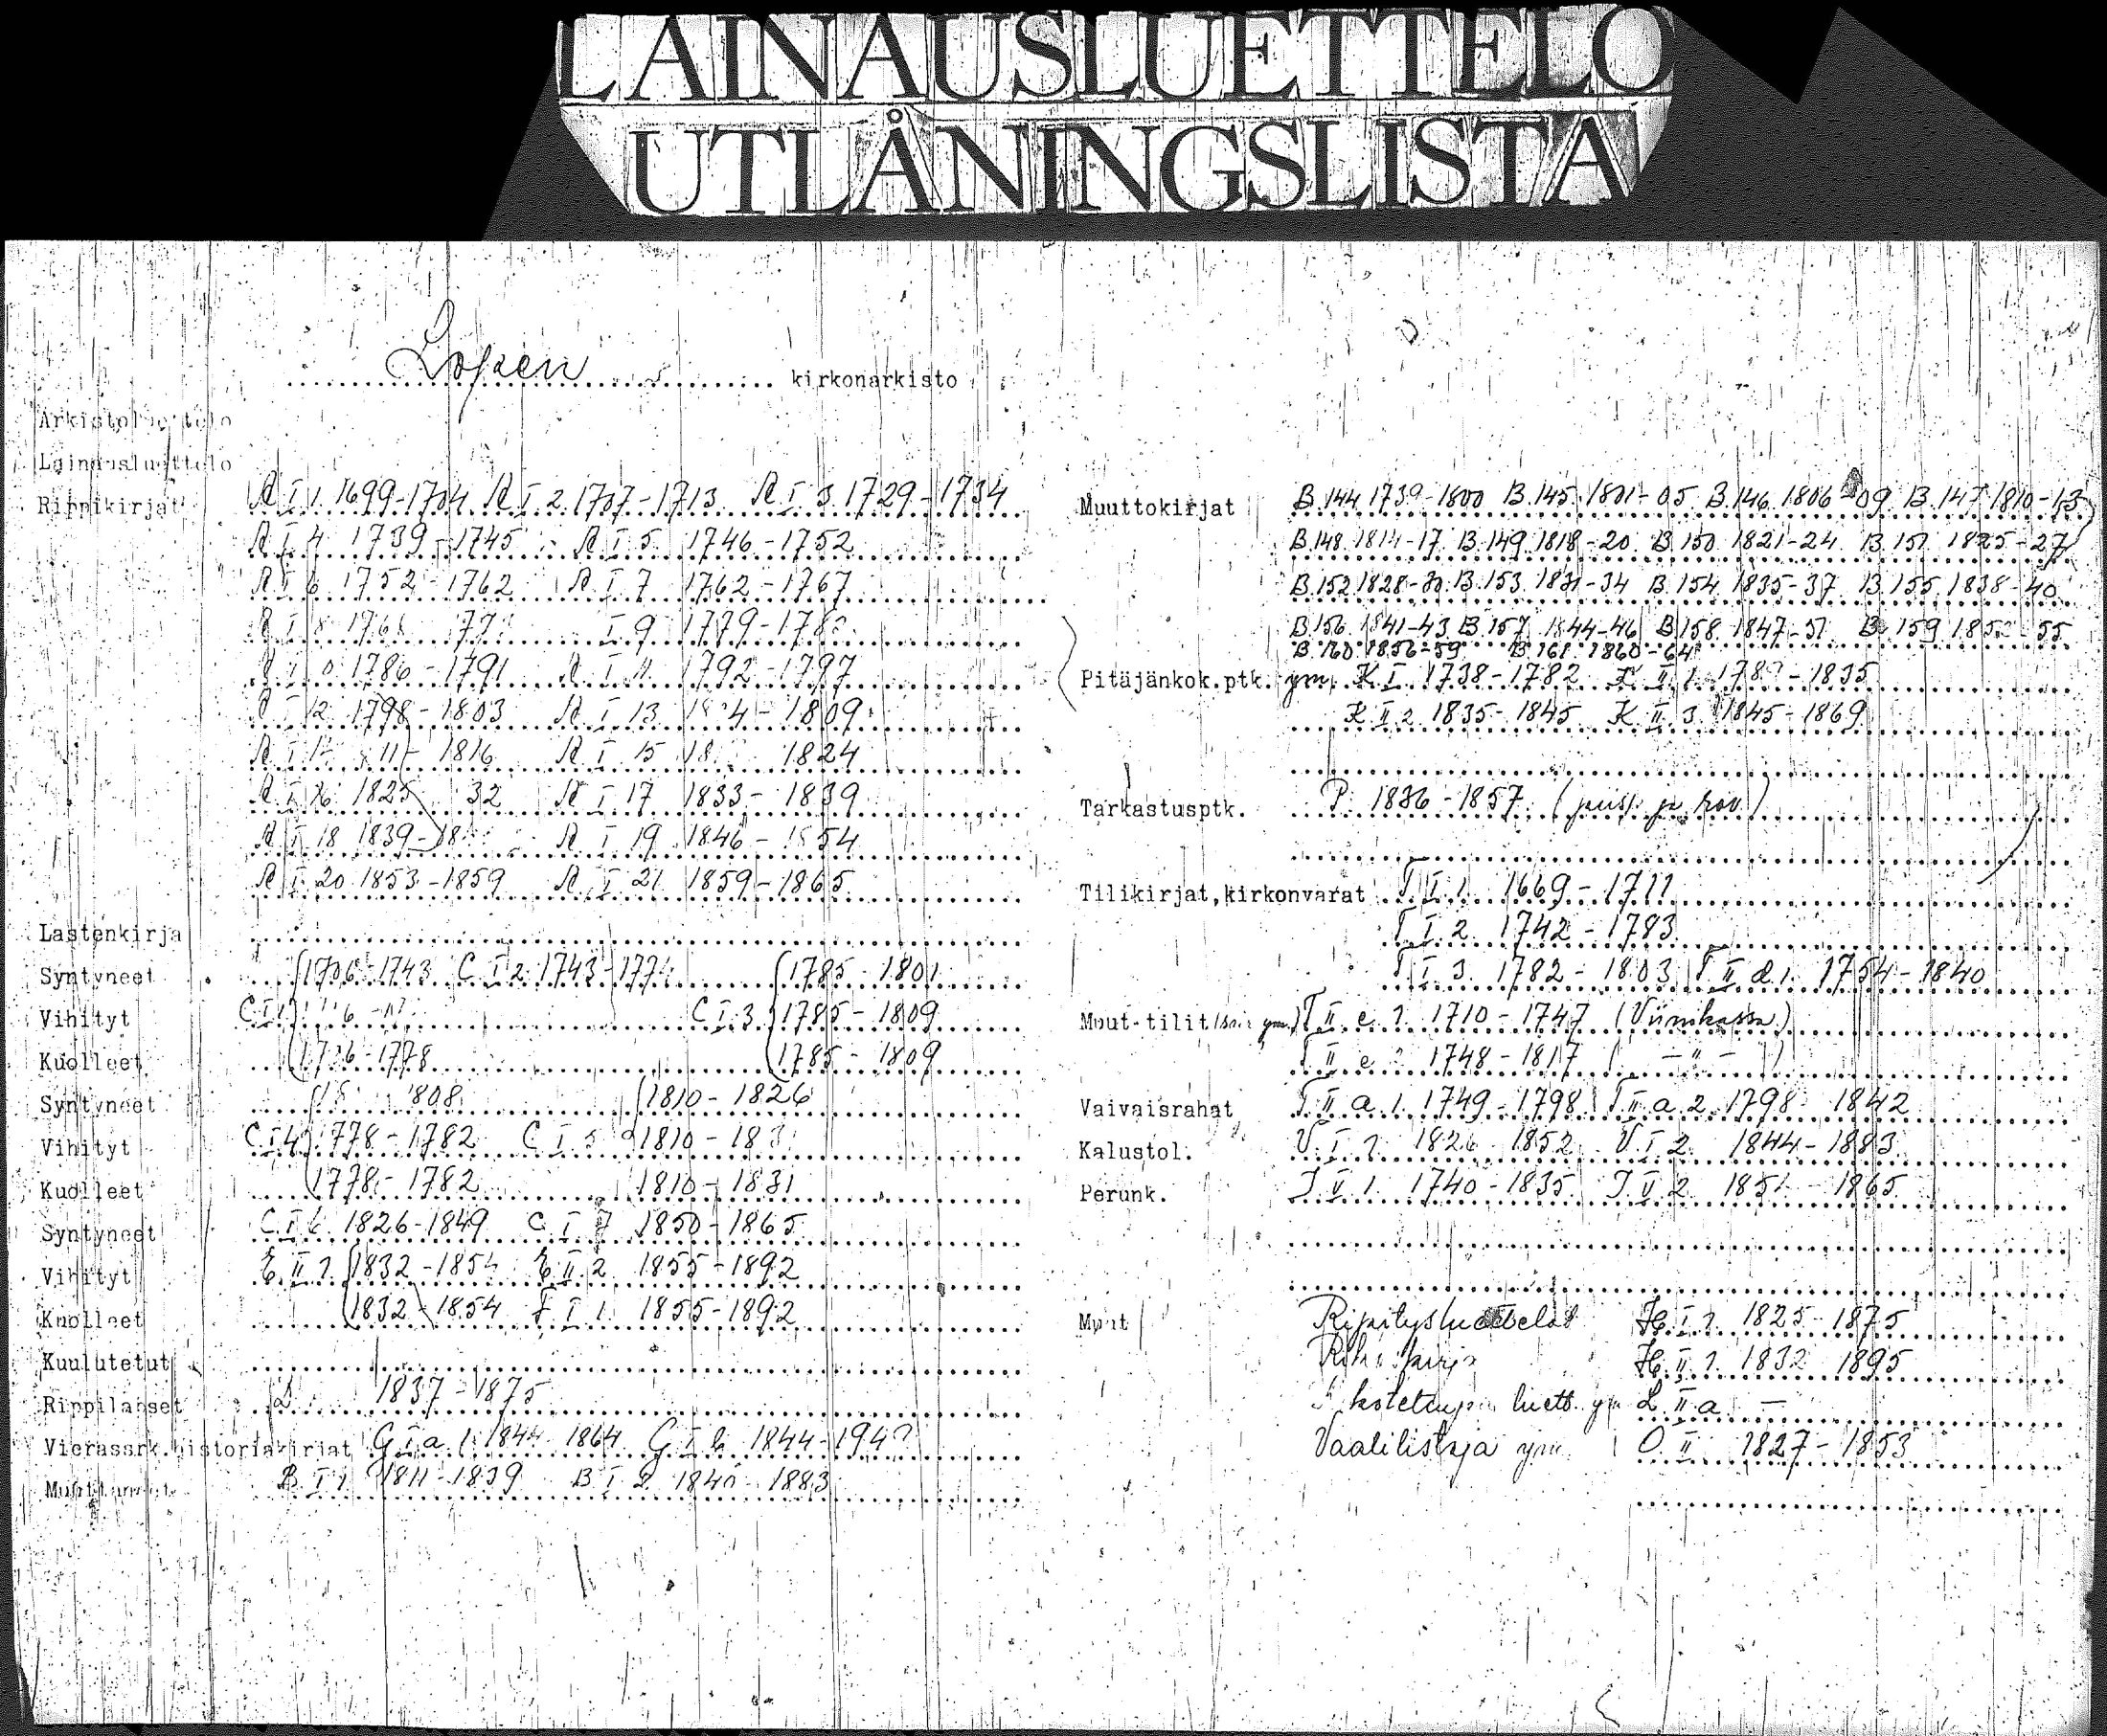 LAINAUSLUETTELO
UTLÅNINGSLISTA
Lopen kirkonarkisto
Arkistoluettelo
Lainausluettelo
Rippikirjat A I 1 1699-1704 A I 2 1707-1713 A I 3 1729-1734
A I 4 1739-1745 A I 5 1746-1752
A I 6 1752-1762 A I 7 1762-1767
I 9 1779-
1786-1791 A I 11 1792-1797
I 12 1798-1803 A I 13 -1809
A I 1816 A I 15 1824
A I 16 1825 32 A I 17 1833-1839
A I 18 1839- A I 19 1846-1854
A I 20 1853-1859 A I 21 1859-1865
Lastenkirja
Syntyneet 1706-1743 C I 2 1743-1774 1785-1801
Vihityt C I 1 C I 3 1785-1809
Kuolleet -1778 1785-1809
Syntyneet 1808 1810-1826
Vihityt C I 4 1778-1782 C I 5 1810-
Kuolleet 1778-1782 1810-1831
Syntyneet C I 6 1826-1849 C I 7 1850-1865
Vihityt E II 1 1832-1854 E II 2 1855-1892
Kuolleet 1832-1854 F I 1 1855-1892
Kuulutetut
Rippilapset D 1837-1875
Vierassrk.historiakirjat G I a 1 1844 1864 G I b 1844-
Muuttaneet B I 1 1811-1839 B I 2 1840-1883
Muuttokirjat B 144 1739-1800 B 145 1801-05 B 146 1806-09 B 147 1810-13
B 148 1814-17 B 149 1818-20 B 150 1821-24 B 151 1825-27
B 152 1828-30 B 153 1831-34 B 154 1835-37 B 155 1838-40
B 156 1841-43 B 157 1844-46 B 158 1847-51 B 159 1852-55
B 160 1856-59 B 161 1860-64
Pitäjänkok.ptk. ym. K I 1738-1782 K II 1 -1835
K II 2 1835-1845 K II 3 1845-1869
Tarkastusptk. P 1836-1857 (piisp. ja rov.)
Tilikirjat, kirkonvarat T I 1 1669-1711
T I 2 1742-1783
T I 3 1782-1803 T II d 1 1754-1840
Muut tilit T II e 1 1710-1747 (Viinikassa)
T II e 2 1748-1817 ( - " - )
Vaivaisrahat T II a 1 1749-1798 T II a 2 1798 1842
Kalustol. V I 1 1826 1852 V I 2 1844-1883
Perunk. J II 1 1740-1835 J II 2 1851-1865
Muut Ripitysluettelot H I 1 1825-1875
H II 1 1832 1895
luett. ym L II a -
Vaalilistoja ym. O II 1827-1853